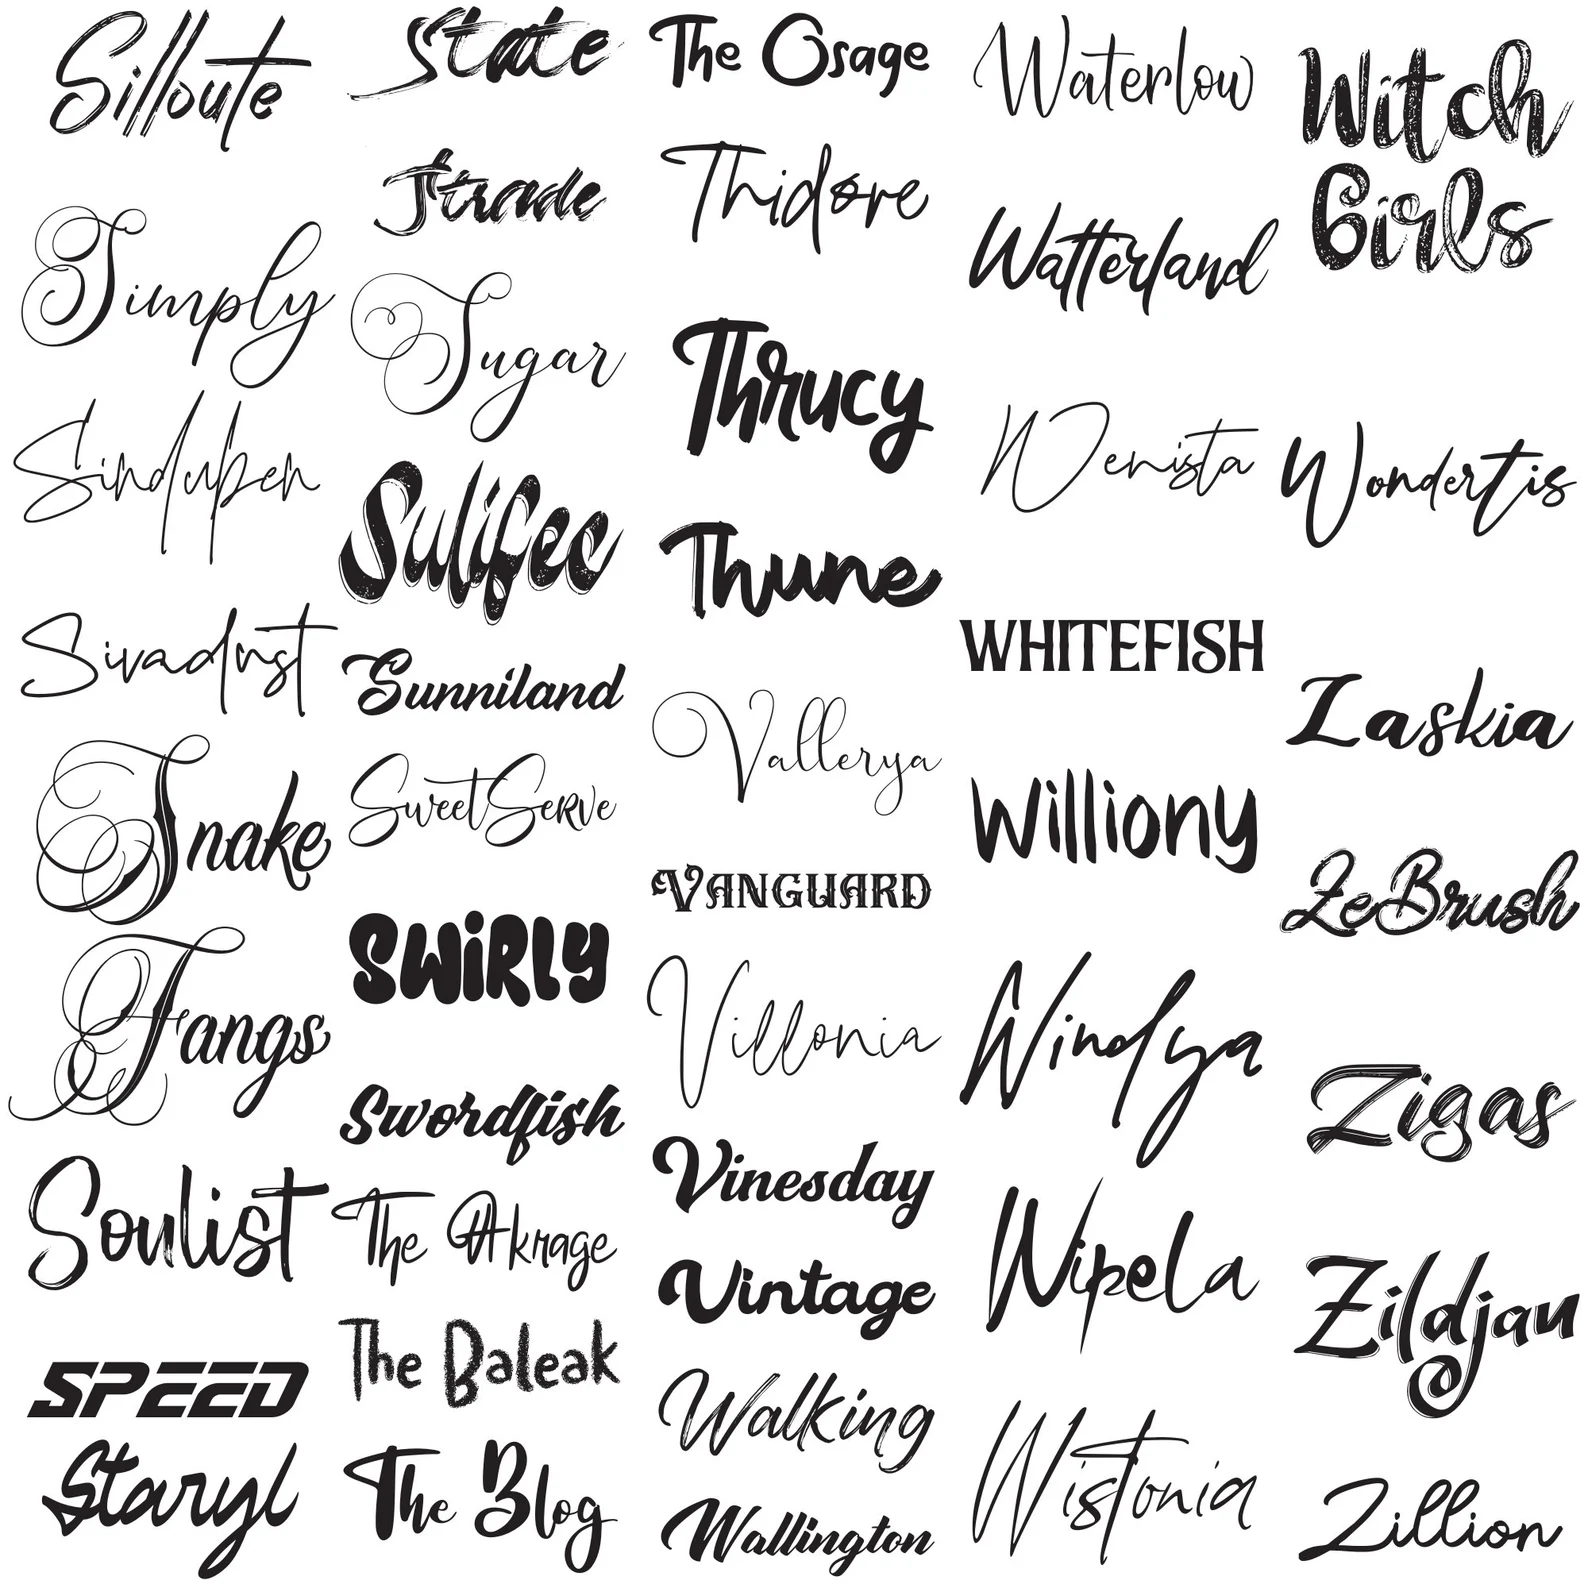 Silloute
Simply
Sinduben
Sivadust
Snake
Fangs
Soulist
SPEED
Staryl
State
Strade
Sugar
Sulifec
Sunniland
SweetServe
SWiRLY
Swordfish
The Akrage
The Baleak
The Blog
The Osage
Thidore
Thrucy
Thune
Vallerya
VANGUARD
Villonia
Vinesday
Vintage
Walking
Wallington
Waterlow
Watterland
Wenista
WHITEFISH
Williony
Windya
Wipela
Wistonia
Witch
Girls
Wondertis
Zaskia
ZeBrush
Zigas
Zildjan
Zillion